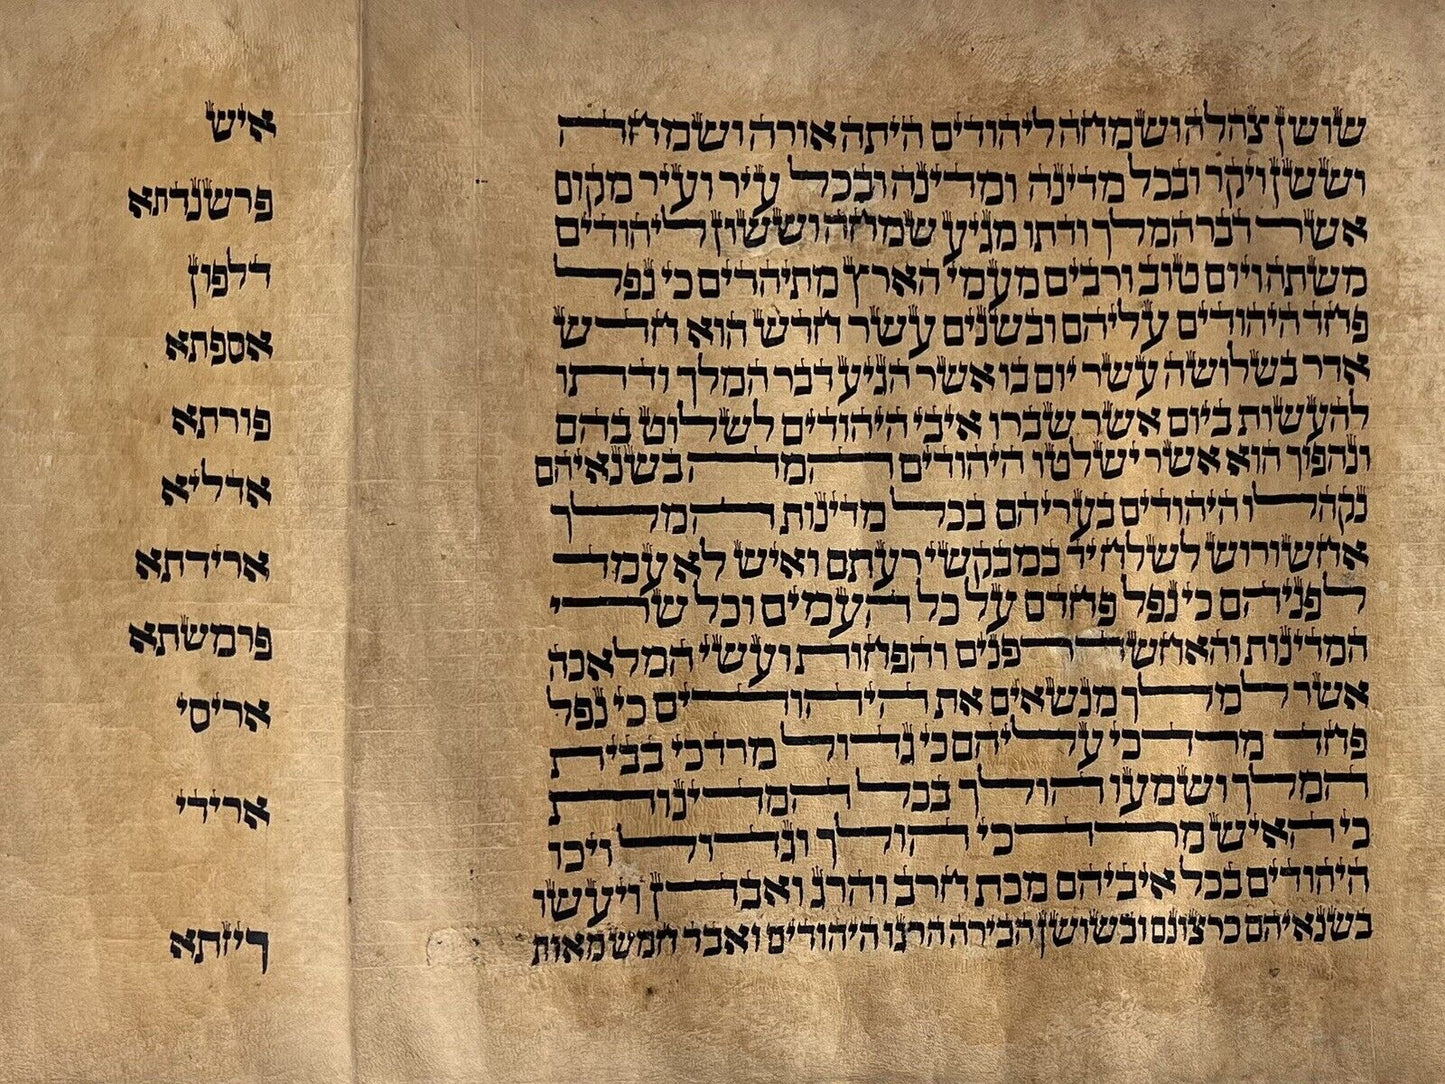 שושן צהלה ושמחה ליהודים היתה אורה ושמחה
וששון ויקר ובכל מדינה ומדינה ובכל עיר ועיר מקום
אשר דבר המלך ודתו מגיע שמחה וששון ליהודים
משתה ויום טוב ורבים מעמי הארץ מתיהדים כי נפל
פחד היהודים עליהם ובשנים עשר חדש הוא חדש
אדר בשלושה עשר יום בו אשר הגיע דבר המלך ודתו
להעשות ביום אשר שברו איבי היהודים לשלוט בהם
ונהפוך הוא אשר ישלטו היהודים המה בשנאיהם
נקהלו היהודים בעריהם בכל מדינות המלך
אחשורוש לשלח יד במבקשי רעתם ואיש לא עמד
לפניהם כי נפל פחדם על כל העמים וכל שרי
המדינות והאחשדרפנים והפחות ועשי המלאכה
אשר למלך מנשאים את היהודים כי נפל
פחד מרדכי עליהם כי גדול מרדכי בבית
המלך ושמעו הולך בכל המדינות
כי האיש מרדכי הולך וגדול ויכו
היהודים בכל איביהם מכת חרב והרג ואבדן ויעשו
בשנאיהם כרצונם ובשושן הבירה הרגו היהודים ואבד חמש מאות
איש
פרשנדתא
דלפון
אספתא
פורתא
אדליא
ארידתא
פרמשתא
אריסי
ארידי
ויזתא